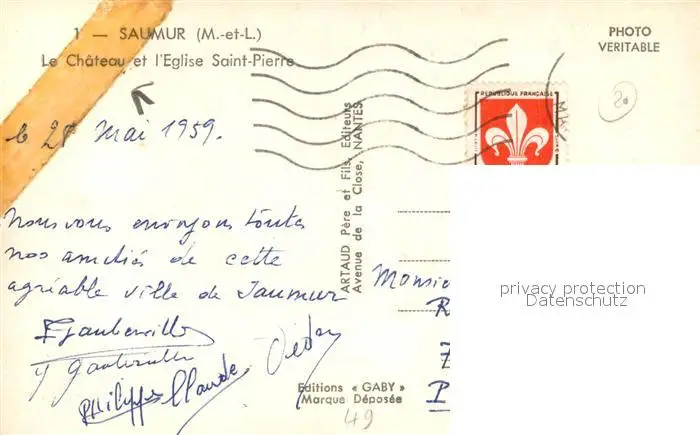 1 — SAUMUR (M.-et-L.)
Le Château et l'Eglise Saint-Pierre
PHOTO
VERITABLE
REPUBLIQUE FRANÇAISE
le 28 Mai 1959.
Nous vous envoyons toutes
nos amitiés de cette
agréable ville de Saumur
Philippe Claude
ARTAUD Père et Fils, Editeurs
Avenue de la Close, NANTES
Monsie
R
P
privacy protection
Datenschutz
Editions « GABY »
Marque Déposée
49